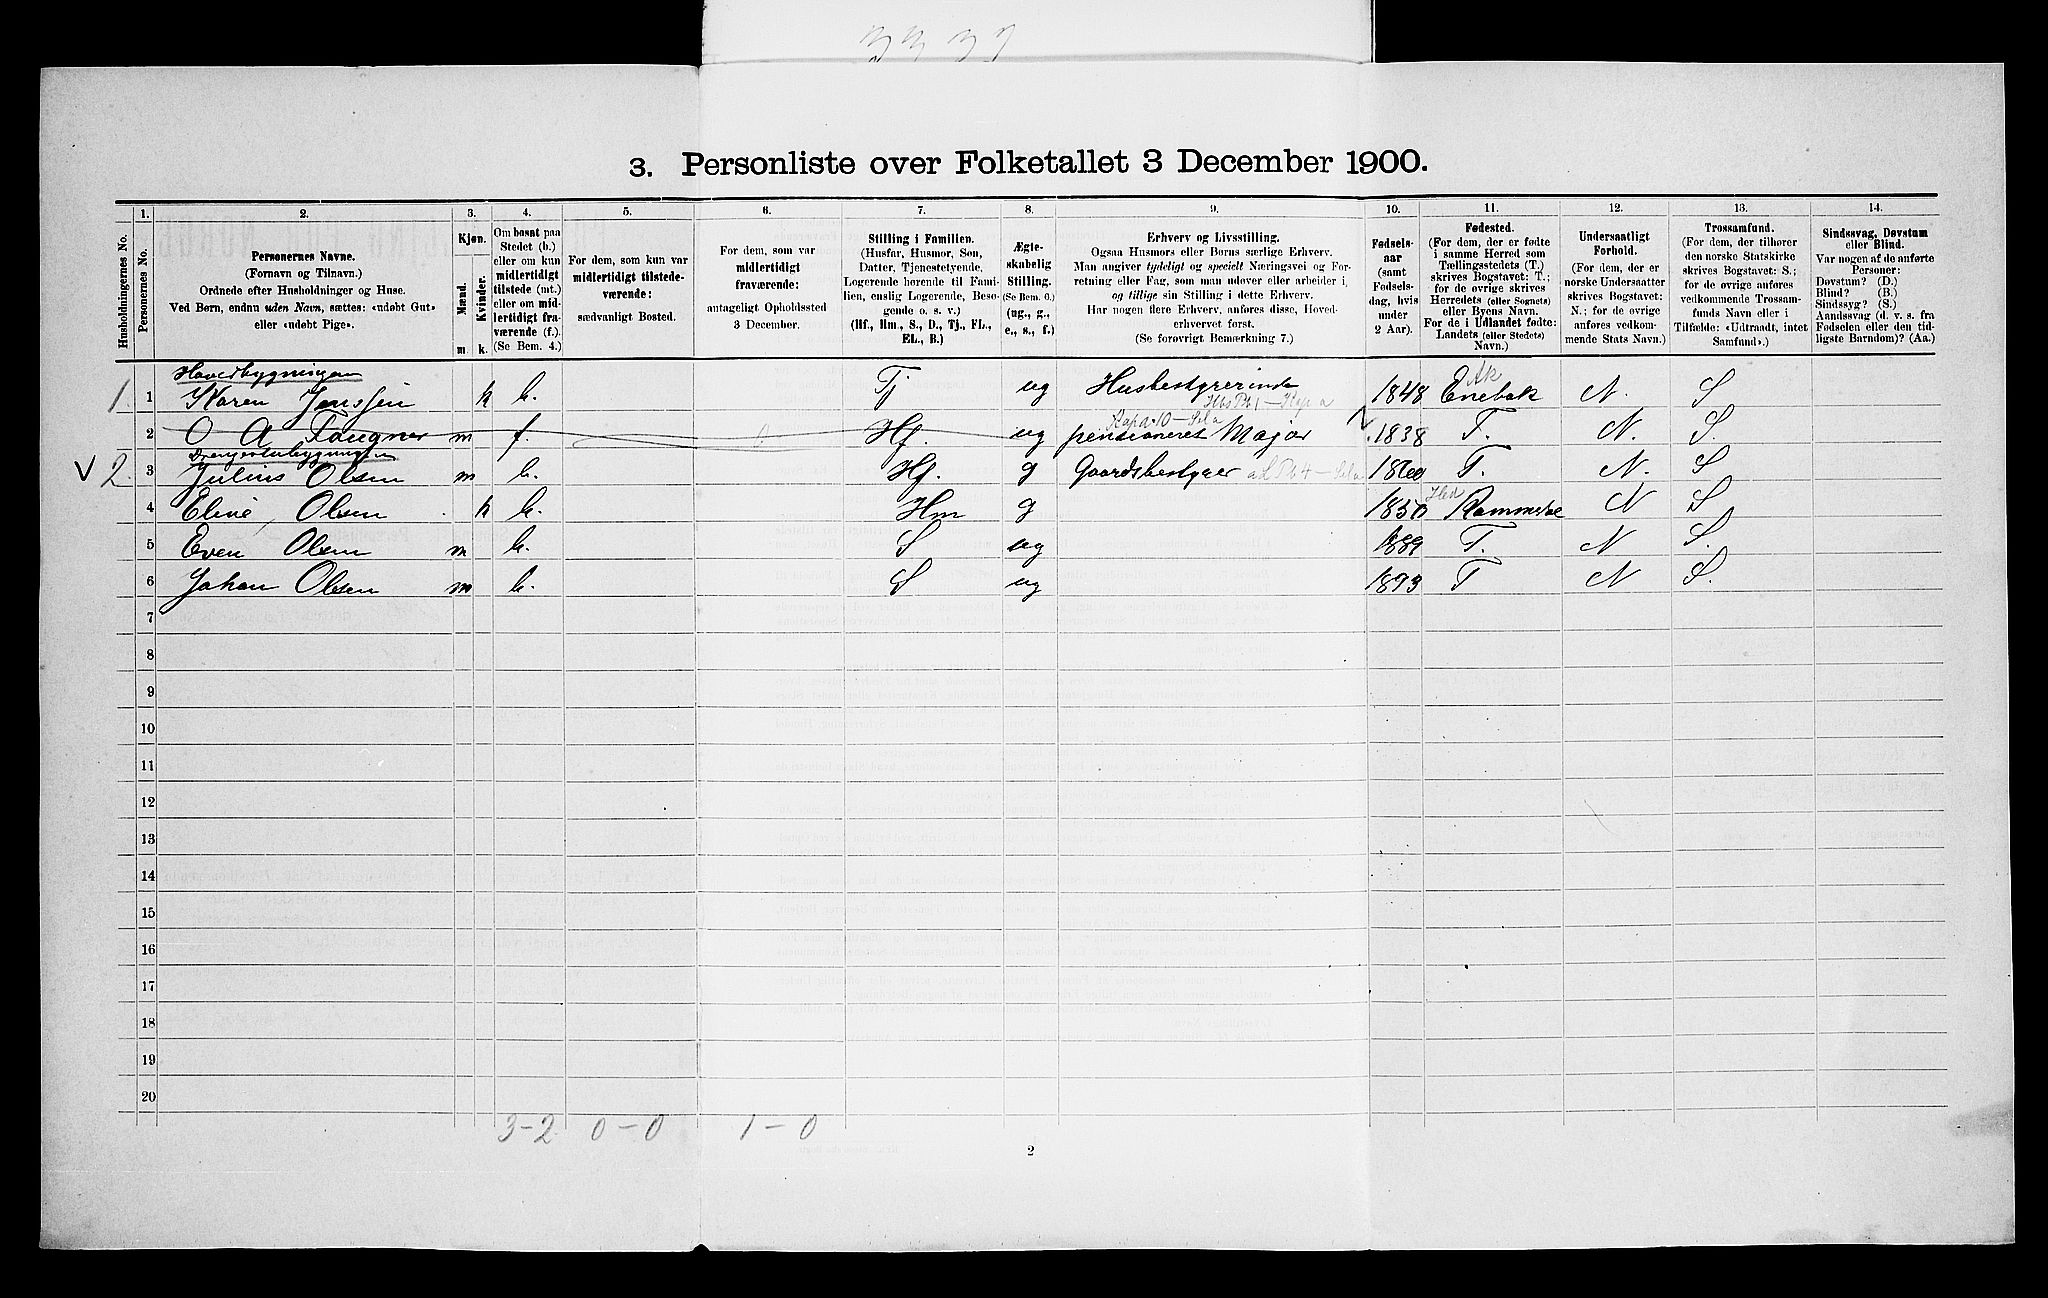 3. Personliste over Folketallet 3 December 1900.
Husholdningernes No.
1.
Personernes No.
2.
Personernes Navne.
(Fornavn og Tilnavn.)
Ordnede efter Husholdninger og Huse.
Ved Børn, endnu uden Navn, sættes: «udøbt Gut»
eller «udøbt Pige».
3.
Kjøn.
Mænd.
Kvinder.
m. k.
4.
Om bosat paa
Stedet (b.)
eller om kun
midlertidigt
tilstede (mt.)
eller om mid-
lertidigt fra-
værende (f.).
(Se Bem. 4.)
5.
For dem, som kun var
midlertidigt tilstede-
værende:
sædvanligt Bosted.
6.
For dem, som var
midlertidigt
fraværende:
antageligt Opholdssted
3 December.
7.
Stilling i Familien.
(Husfar, Husmor, Søn,
Datter, Tjenestetyende,
Logerende hørende til Fami-
lien, enslig Logerende, Besø-
gende o. s. v.)
(Hf., Hm., S., D., Tj., FL.,
EL., B.)
8.
Ægte-
skabelig
Stilling.
(Se Bem. 6.)
(ug., g.,
e., s., f.)
9.
Erhverv og Livsstilling.
Ogsaa Husmors eller Børns særlige Erhverv.
Man angiver tydeligt og specielt Næringsvei og For-
retning eller Fag, som man udøver eller arbeider i,
og tillige sin Stilling i dette Erhverv.
Har nogen flere Erhverv, anføres disse, Hoved-
erhvervet først.
(Se forøvrigt Bemærkning 7.)
10.
Fødsels-
aar
(samt
Fødsels-
dag, hvis
under
2 Aar).
11.
Fødested.
(For dem, der er fødte
i samme Herred som
Tællingsstedets (T.)
skrives Bogstavet: T.;
for de øvrige skrives
Herredets (eller Sognets)
eller Byens Navn.
For de i Udlandet fødte:
Landets (eller Stedets)
Navn.)
12.
Undersaatligt
Forhold.
(For dem, der er
norske Undersaatter
skrives Bogstavet:
N.; for de øvrige
anføres vedkom-
mende Stats Navn.)
13.
Trossamfund.
(For dem, der tilhører
den norske Statskirke
skrives Bogstavet: S.;
for de øvrige anføres
vedkommende Trossam-
funds Navn eller i
Tilfælde: «Udtraadt, intet
Samfund».)
14.
Sindssvag, Døvstum
eller Blind.
Var nogen af de anførte
Personer:
Døvstum? (D.)
Blind? (B.)
Sindssyg? (S.)
Aandssvag (d. v. s. fra
Fødselen eller den tid-
ligste Barndom)? (Aa.)
Hovedbygningen
1. 1 Karen Jenssen k b. Tj ug Husbestyrerinde 1848 Ak Enebak N. S
2 O A Faugner m f. Hf. ug pensioneret Major 1838 T. N. S.
Drengestubygningen
2. 3 Julius Olsen m b. Hf. g Gaardsbestyrer 1860 T. N. S
4 Eline Olsen k b. Hm g 1850 Hed N S
5 Even Olsen m b. S ug 1889 T. N S.
6 Johan Olsen m b. S ug 1893 T N S.
7
8
9
10
11
12
13
14
15
16
17
18
19
20
3-2 0-0 1-0
2